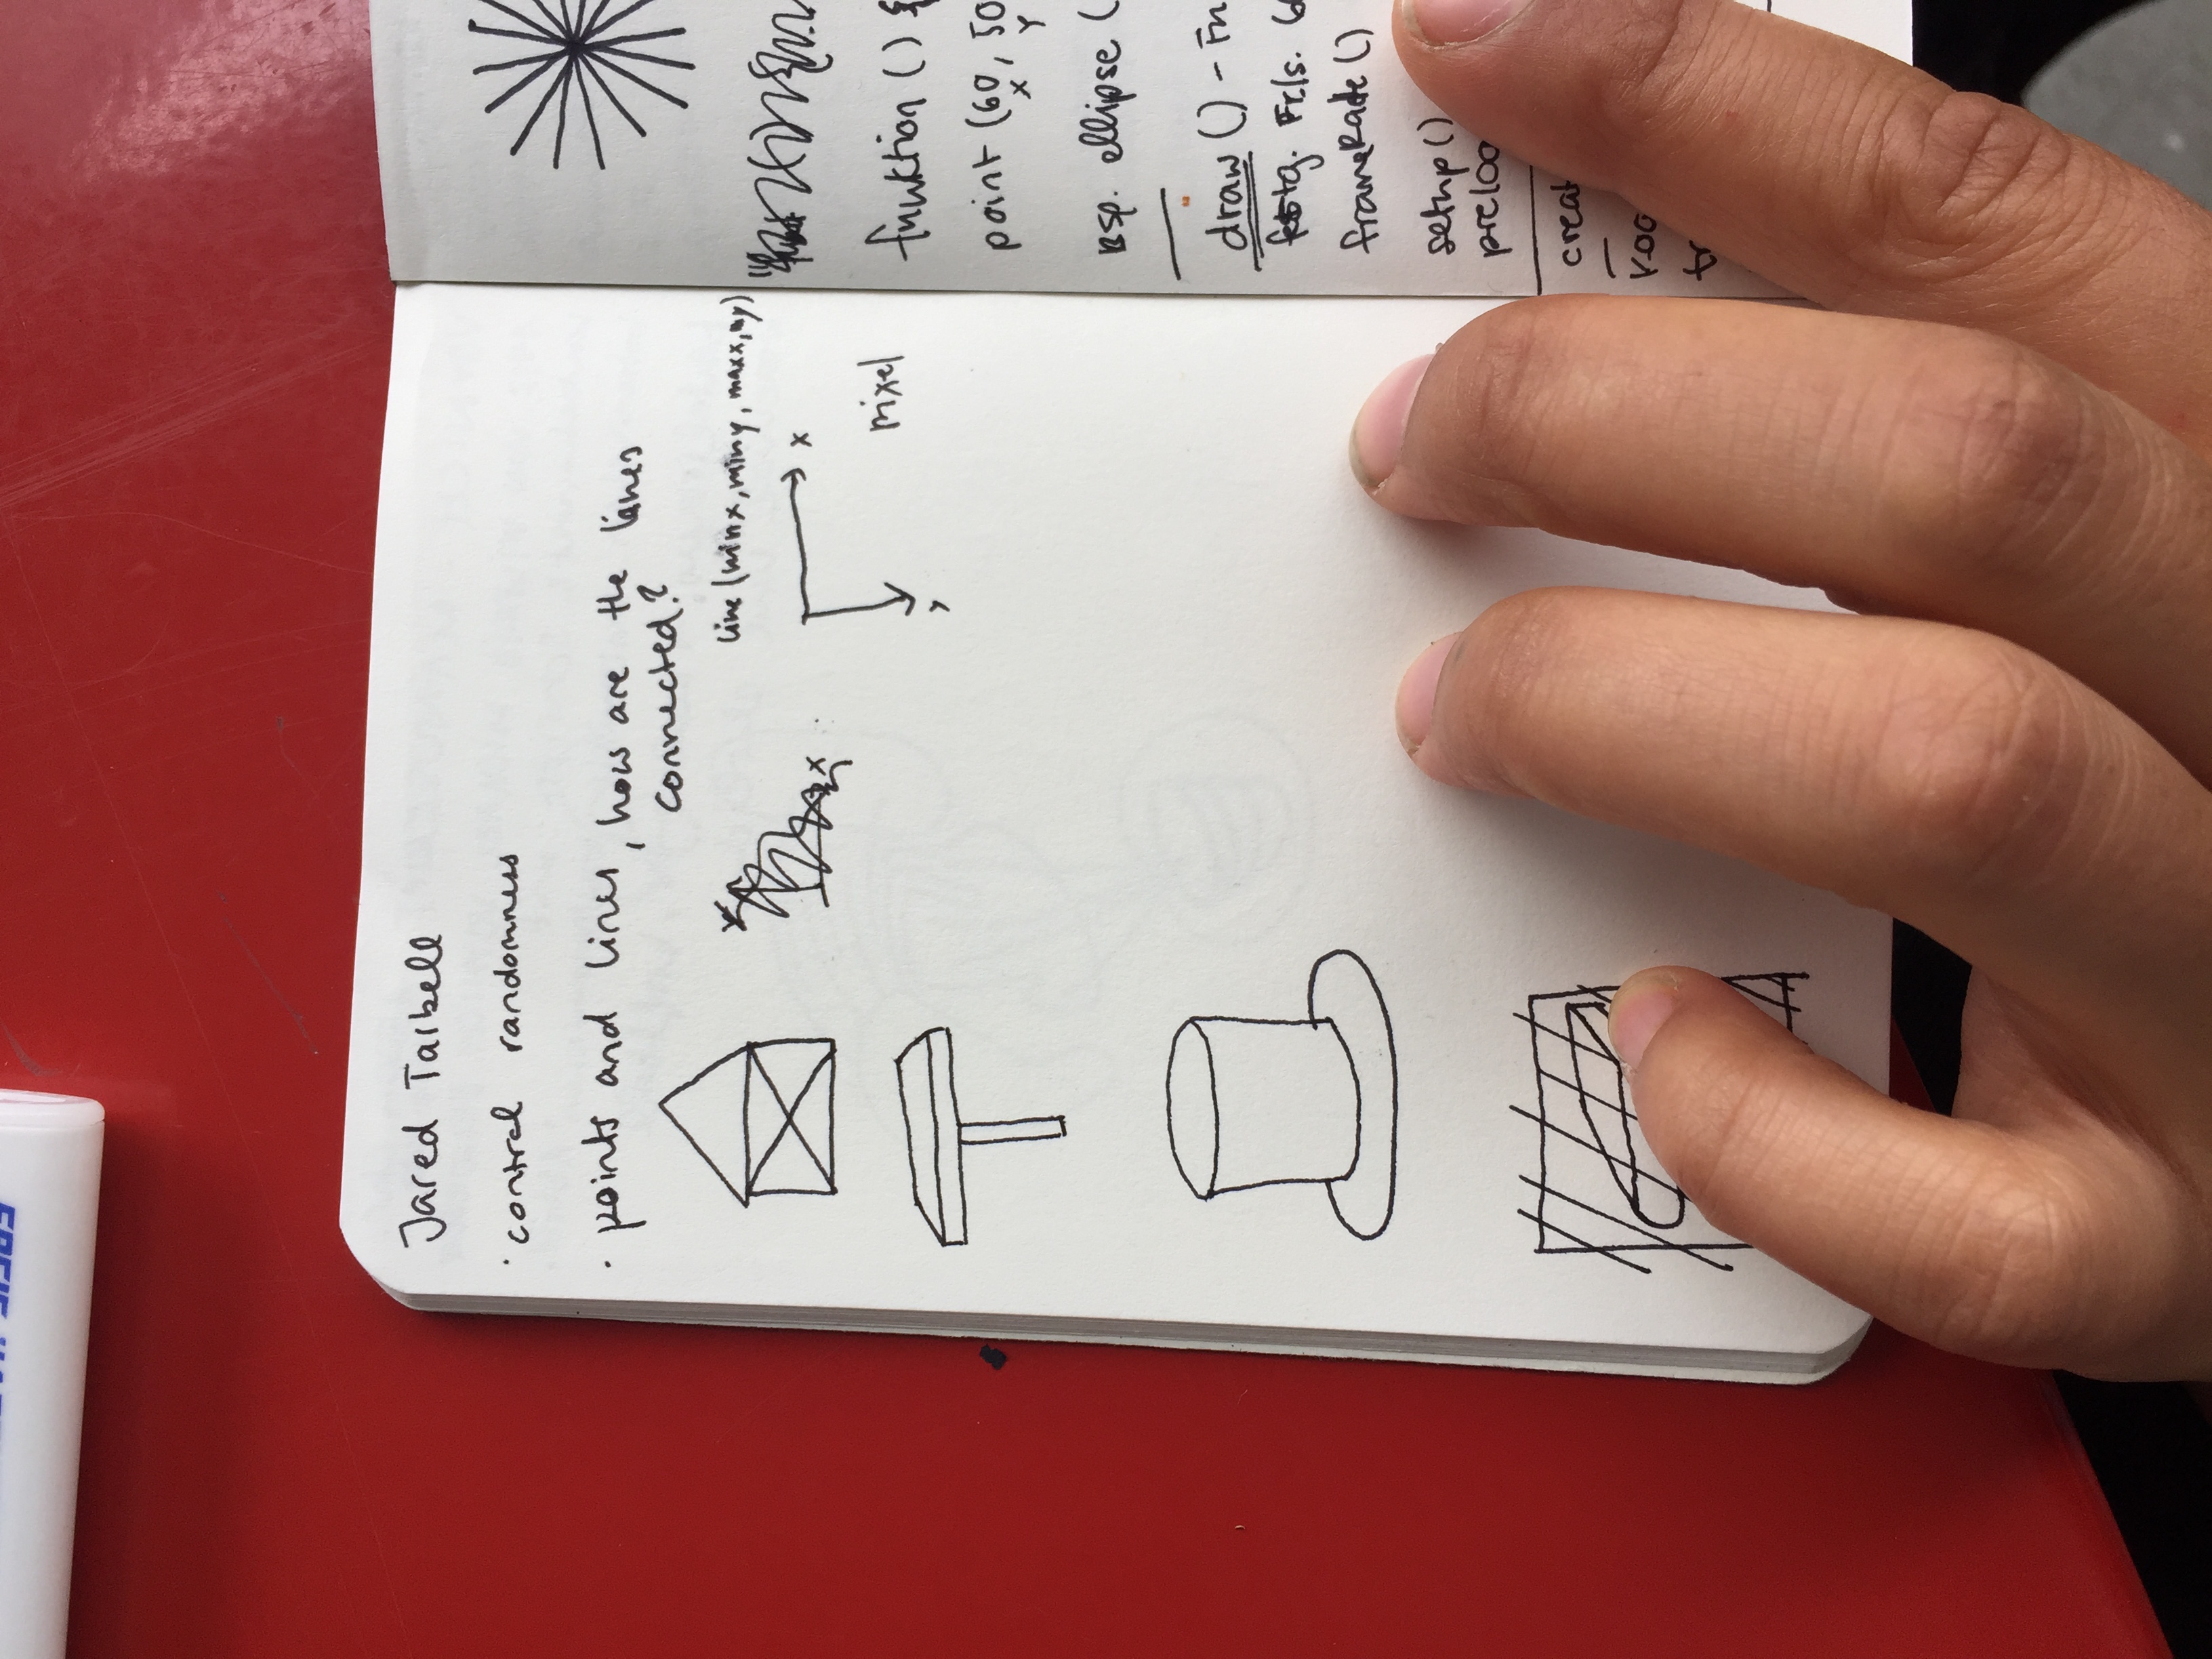 Jared Tarbell
· control randomness
· points and lines, how are the lines
connected?
line (minx, miny, maxx, my)
x
y
pixel
x
funktion () {
point (60, 50
x y
Bsp. ellipse (
draw () - Fn
frameRate ()
setup()
preloa
creat